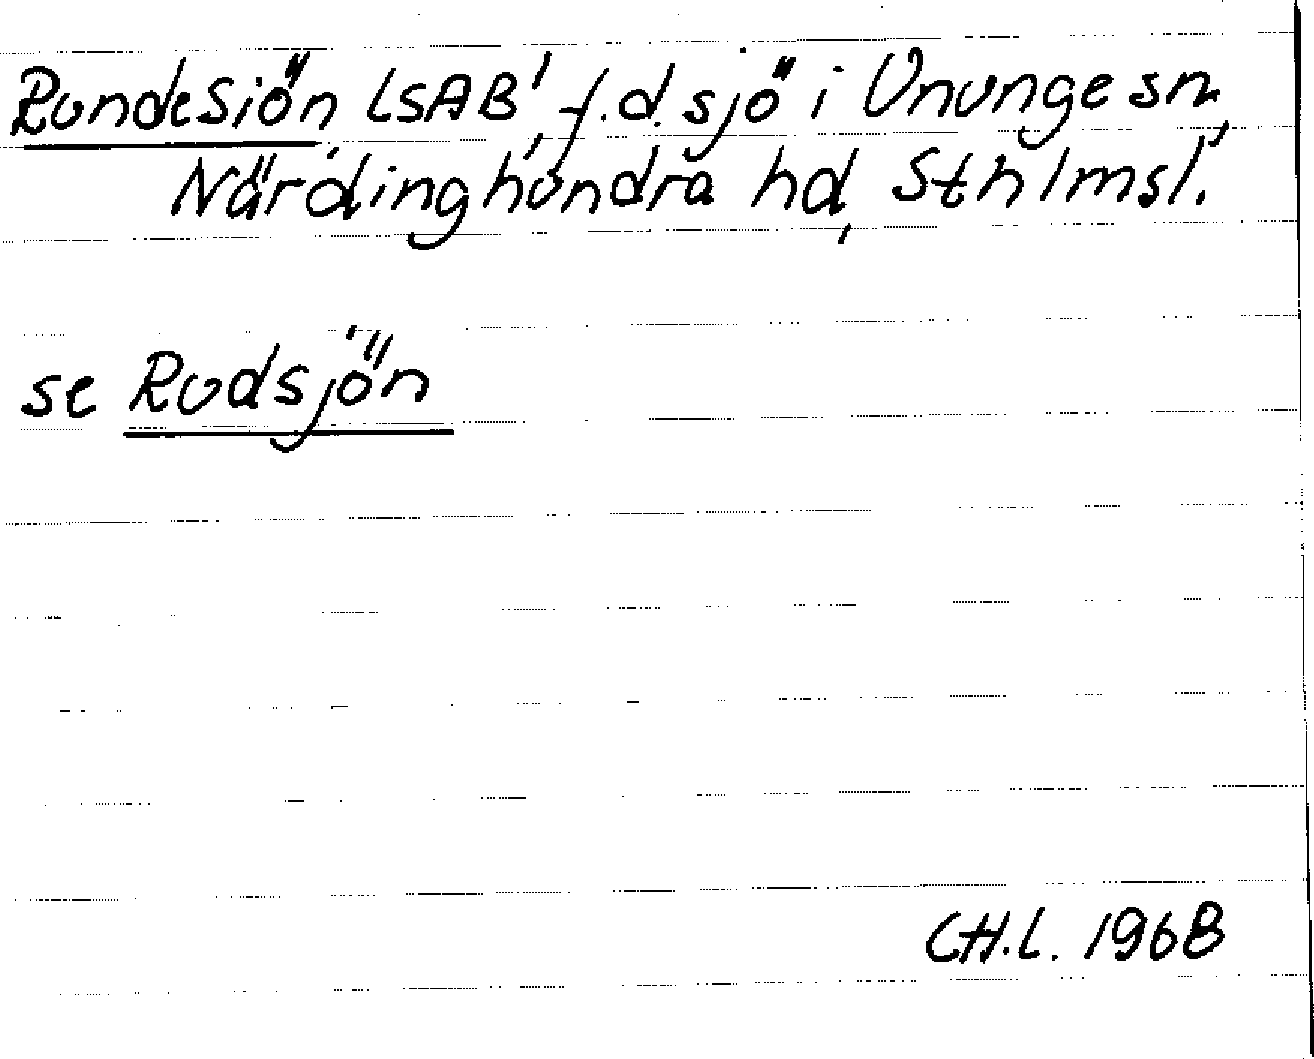 RundeSiön LSAB¹, f.d. sjö i Ununge sn,
Närdinghundra hd, Sthlmsl.
se Rudsjön
CH.L. 1968